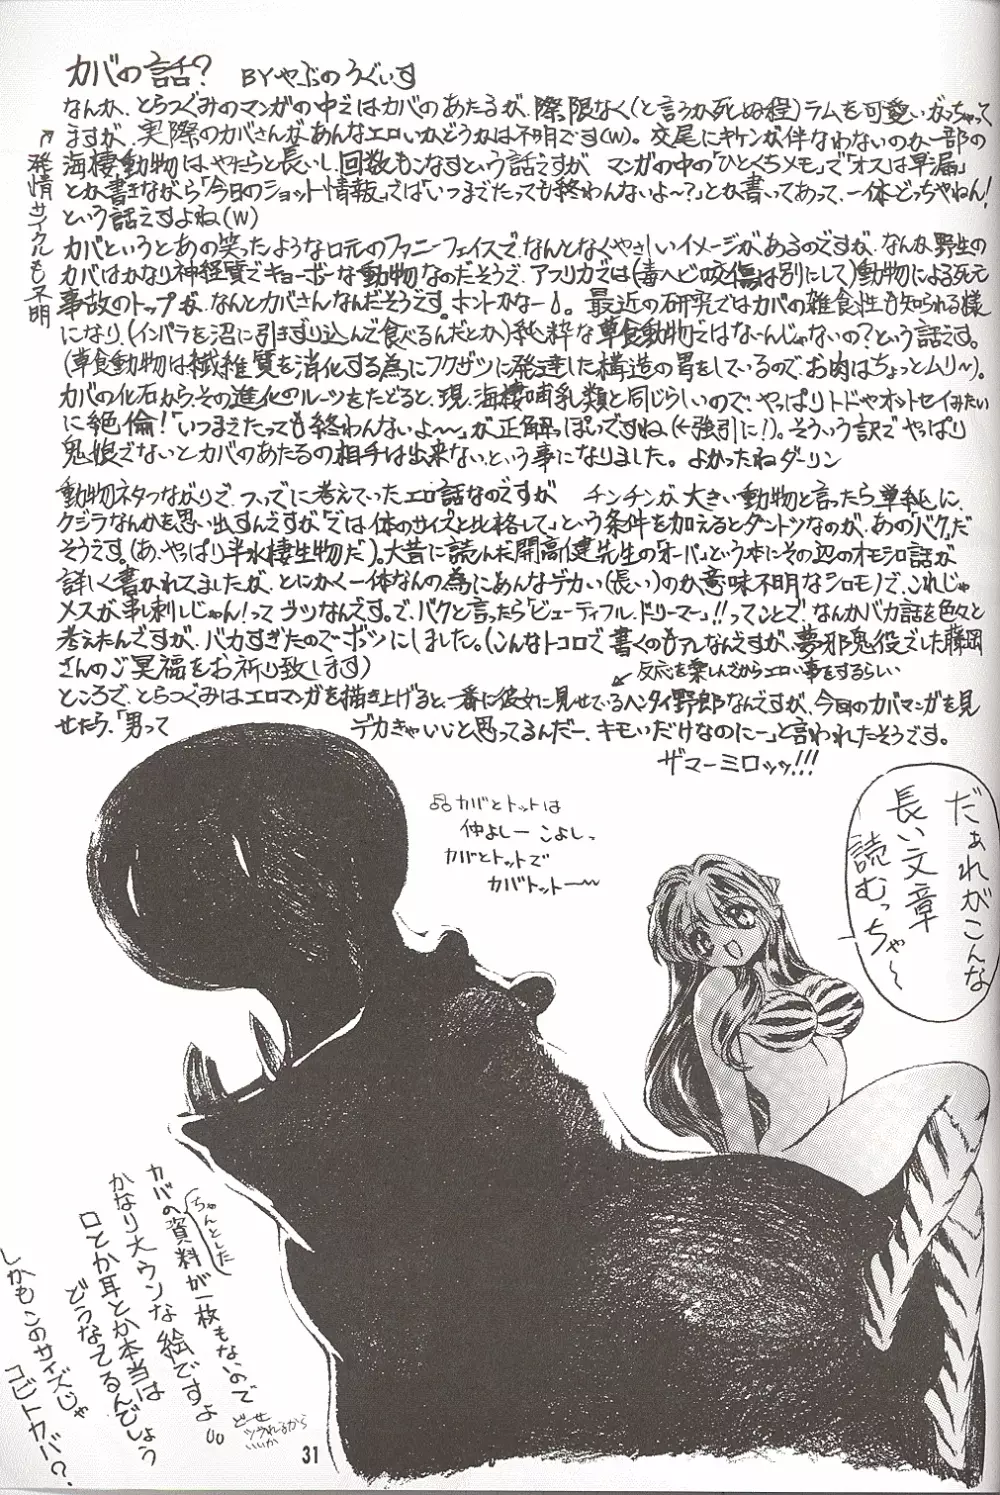 カバの話? BYやぶのうぐいす
なんか、とらつぐみのマンガの中ではカバのあたるが、際限なく(と言うか死ぬ程)ラムを可愛いがっちゃって
ますが、実際のカバさんがあんなエロいかどうかは不明です(w)。交尾にキケンが伴なわないのか一部の
海棲動物は、やたらと長いし、回数もこなすという話ですが マンガの中の「ひとくちメモ」で「オスは早漏」
とか書きながら「今日のショット情報」では「いつまでたっても終わんないよ〜?」とか書いてあって、一体どっちやねん!
という話ですよね(w)
↑発情サイクルも不明
カバというとあの笑ったような口元のファニーフェイスで、なんとなくやさしいイメージがあるのですが、なんか野生の
カバはかなり神経質でキョーボーな動物なのだそうで、アフリカでは(毒ヘビの咬傷は別にして)動物による死亡
事故のトップが、なんとカバさんなんだそうです。ホントかなー。最近の研究ではカバの雑食性も知られる様
になり、(インパラを沼に引きずり込んで食べるんだとか)純粋な草食動物ではな〜んじゃないの?という話です。
(草食動物は繊維質を消化する為にフクザツに発達した構造の胃をしているので、お肉はちょっとムリ〜)。
カバの化石から、その進化のルーツをたどると、現、海棲哺乳類と同じらしいので、やっぱりトドやオットセイみたい
に絶倫!「いつまでたっても終わんないよ〜〜」が正解っぽいですね、(←強引に!)。そういう訳でやっぱり
鬼娘でないとカバのあたるの相手は出来ない、という事になりました。よかったねダーリン
動物ネタつながりで、ついでに考えていったエロ話なのですが チンチンが大きい動物と言ったら単純に、
クジラなんかを思い出すんですが「では体のサイズと比格して」という条件を加えるとダントツなのが、あの「バク」だ
そうです。(あ、やっぱり半水棲生物だ)。大昔に読んだ開高健先生の「オーパ」という本にその辺のオモシロ話が
詳しく書かれてましたが、とにかく一体なんの為にあんなデカい(長い)のか意味不明なシロモノで、これじゃ
メスが串刺しじゃん!ってウツなんです。で、バクと言ったら「ビューティフル・ドリーマー」!!ってことで、なんかバカ話を色々と
考えたんですが、バカすぎたのでボツにしました。(こんなトコロで書くのもアレなんですが、夢邪鬼役でした藤岡
さんのご冥福をお祈り致します)
↙反応を楽しんでからエロい事をするらしい
ところで、とらつぐみはエロマンガを描き上げると、一番に彼女に見せているヘンタイ野郎なんですが、今回のカバマンガを見
せたら、「男って デカきゃいいと思ってるんだー、キモいだけなのにー」と言われたそうです。
ザマーミロッッ!!!
♫カバとトットは
仲よしー こよし、
カバとトットで
カバトットー〜
だぁれがこんな
長い文章
読むっちゃ〜
カバの資料が一枚もないので
ちゃんとした
かなり大ウソな絵ですよ。
口とか耳とか本当は
どうなってるんでしょう
しかもこのサイズじゃ
コビトカバ?
どーせ
ツブれるから
いいか
31